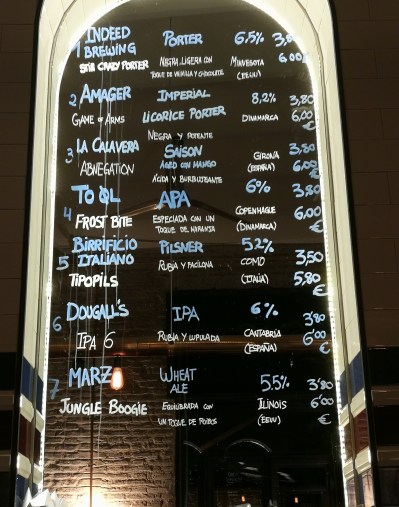 1 INDEED BREWING PORTER 6.5% 3,80
STIR CRAZY PORTER NEGRA, LIGERA CON TOQUE DE VAINILLA Y CHOCOLATE MINNESOTA (EEUU) 6,00
2 AMAGER IMPERIAL LICORICE PORTER 8,2% 3,80
GAME OF ARMS NEGRA Y POTENTE DINAMARCA 6,00 €
3 LA CALAVERA SAISON GIRONA 3,80
ABNEGATION AGED CON MANGO (ESPAÑA) 6,00 €
ÁCIDA Y BURBUJEANTE 6%
4 TO ØL APA COPENHAGUE 3,80
FROST BITE ESPECIADA CON UN TOQUE DE NARANJA (DINAMARCA) 6,00 €
5 BIRRIFICIO ITALIANO PILSNER 5,2% 3,50
TIPOPILS RUBIA Y FACILONA COMO (ITALIA) 5,80 €
6 DOUGALL'S IPA 6% 3'80
IPA 6 RUBIA Y LUPULADA CANTABRIA (ESPAÑA) 6'00 €
7 MARZ WHEAT ALE 5.5% 3'80
JUNGLE BOOGIE EQUILIBRADA CON UN TOQUE DE ROIBOS ILINOIS (EEUU) 6'00 €